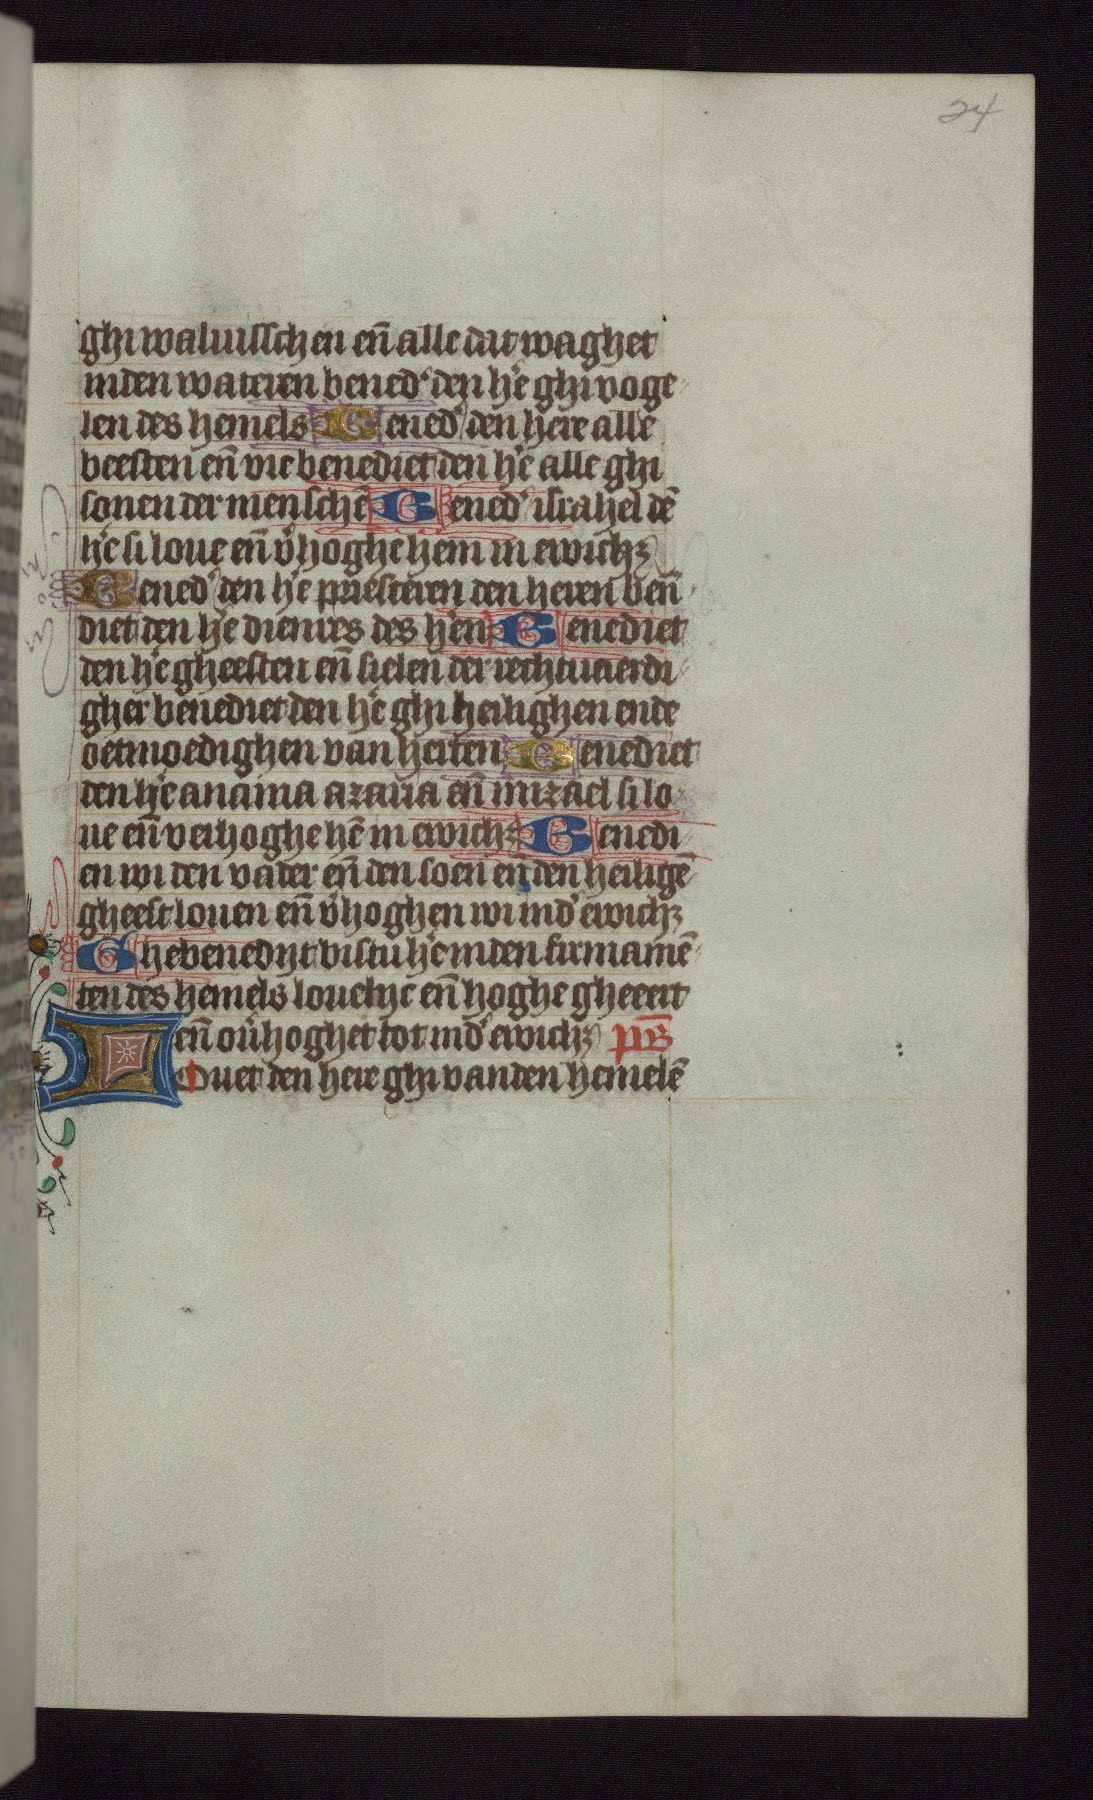 24
ghi waluisschen en̄ alle dat waghet
inden wateren bened' den h'e ghi voge-
len des hemels Bened' den here alle
beesten en̄ vie benediet den h'e alle ghi
sonen der menschē Bened' israhel dē
h'e si loue en̄ v'hoghe hem in ewichʒ
Bened' den h'e priesteren den heren ben̄-
diet den h'e dienres des h'en Benediet
den h'e gheesten en̄ sielen der rechtuaerdi-
gher benediet den h'e ghi heilighen ende
oetmoedighen van herten Benediet
den h'e anania azaria en̄ mizael si lo-
ue en̄ verhoghe hē in ewichʒ Benedi
en wi den vader en̄ den soen en̄ den heiligē
gheest louen en̄ v'hoghen wi in d' ewichʒ
Ghebenedijt bistu h'e inden firmamē-
ten des hemels louelijc en̄ hoghe gheeert
en̄ ou'hoghet tot in d' ewichʒ ps
Louet den here ghi vanden hemelē